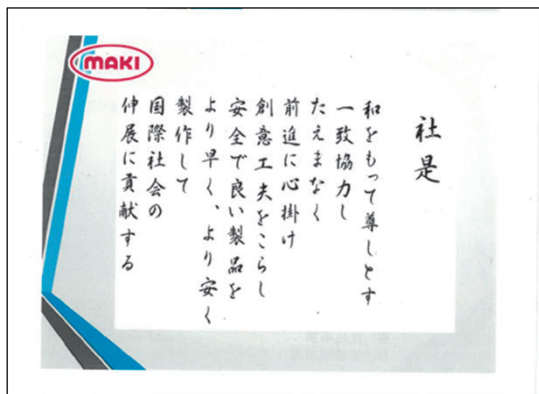 MAKI
社是
和をもって尊しとす
一致協力し
たえまなく
前進に心掛け
創意工夫をこらし
安全で良い製品を
より早く、より安く
製作して
国際社会の
伸展に貢献する